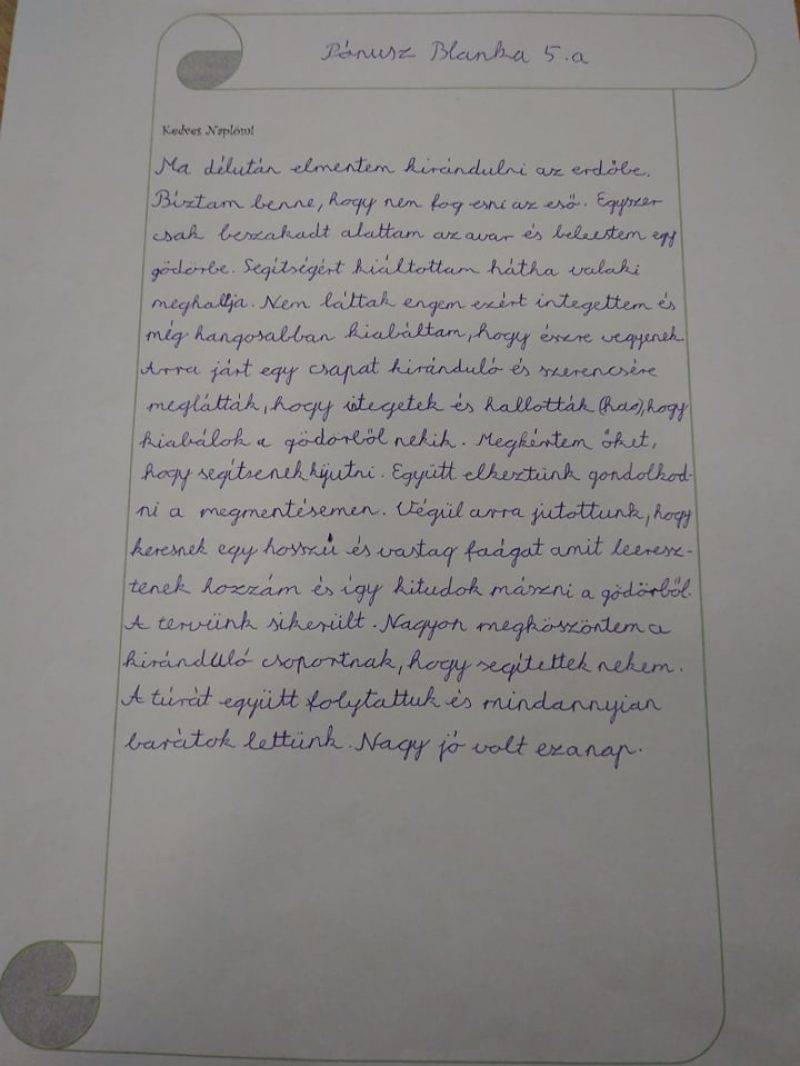 Pónusz Blanka 5.a
Kedves Naplóm!
Ma délután elmentem kirándulni az erdőbe.
Bíztam benne, hogy nem fog esni az eső. Egyszer
csak beszakadt alattam az avar és beleestem egy
gödörbe. Segítségért kiáltottam hátha valaki
meghallja. Nem láttak engem ezért integettem és
még hangosabban kiabáltam, hogy észre vegyenek.
Arra járt egy csapat kiránduló és szerencsére
meglátták, hogy itegetek és hallották, hogy
kiabálok a gödörből nekik. Megkértem őket,
hogy segítsenek kijutni. Együtt elkeztünk gondolkod-
ni a megmentésemen. Végül arra jutottunk, hogy
keresnek egy hosszú és vastag faágat amit leeresz-
tenek hozzám és így kitudok mászni a gödörből.
A tervünk sikerült. Nagyon megköszöntem a
kiránduló csoportnak, hogy segítettek nekem.
A túrát együtt folytattuk és mindannyian
barátok lettünk. Nagy jó volt ezanap.